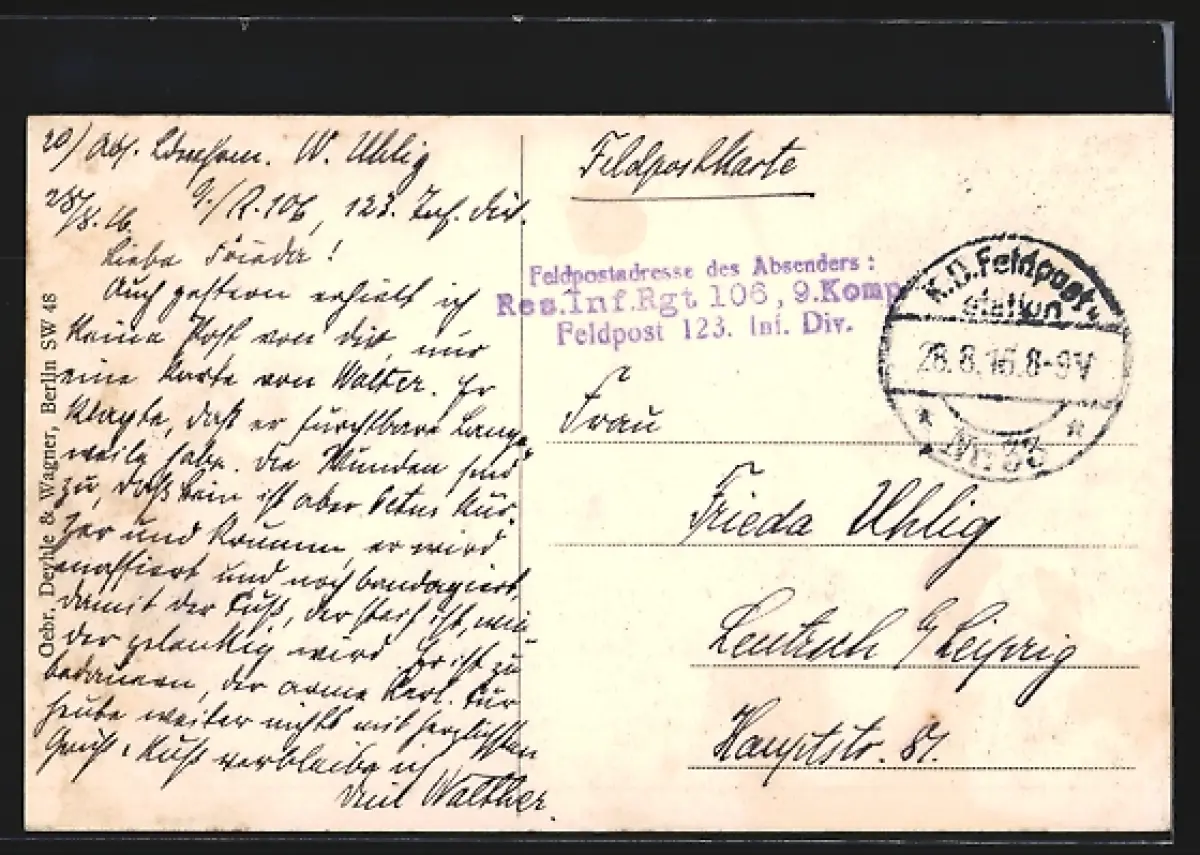 20/ Abs. W. Uhlig
28/8.16. 9./R.106, 123. Inf. Div.
Liebe Frieda!
Auch gestern erhielt ich
keine Post von dir, nur
eine Karte von Walter. Er
klagte, daß er furchtbare Lange-
weile habe. Die Wunden sind
zu, das Bein ist aber etwas kür-
zer und krumm, er wird
massiert und noch bandagiert,
damit der Fuß, der steif ist, wie-
der gelenkig wird. Er ist zu
bedauern, der arme Kerl. Für
heute weiter nichts mit herzlichsten
Gruß u. Kuß verbleibe ich
dein Walther.
Gebr. Deyhle & Wagner, Berlin SW 48
Feldpostkarte
Feldpostadresse des Absenders:
Res.Inf.Rgt 106, 9.Komp
Feldpost 123. Inf. Div.
K.D.Feldpost-
station
28.8.16.8-9V
* Nr. *
Frau
Frieda Uhlig
Leutzsch b/Leipzig
Hauptstr. 81.